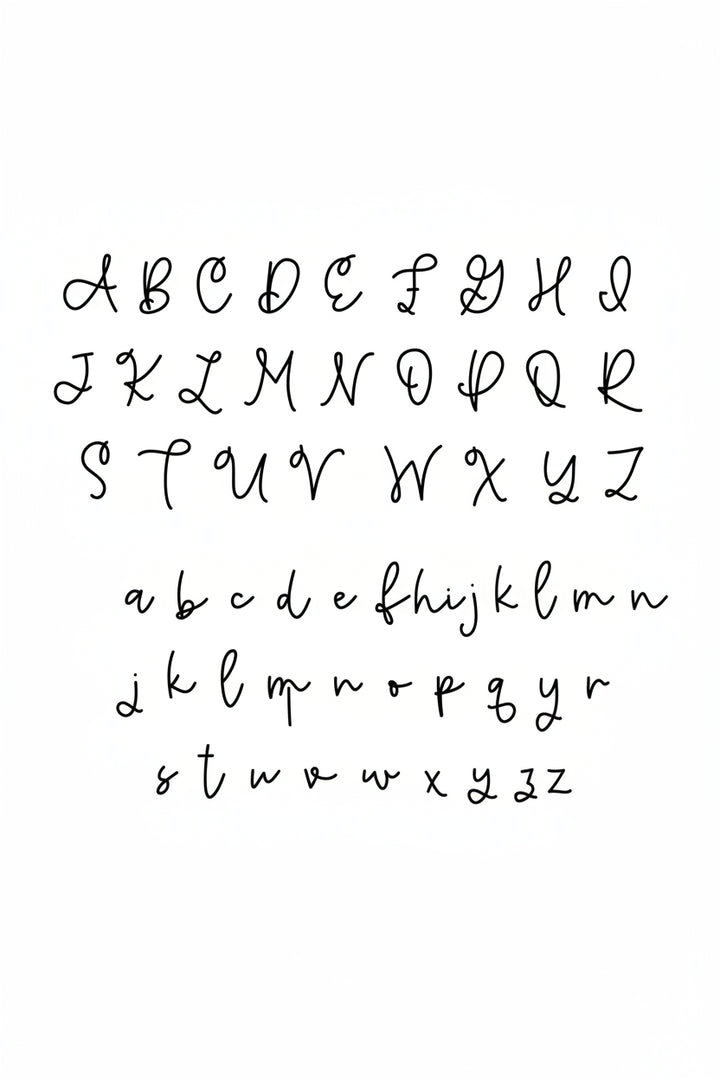 A B C D E F G H I
J K L M N O P Q R
S T U V W X Y Z
a b c d e f h i j k l m n
j k l m n o p q y r
s t u v w x y z z